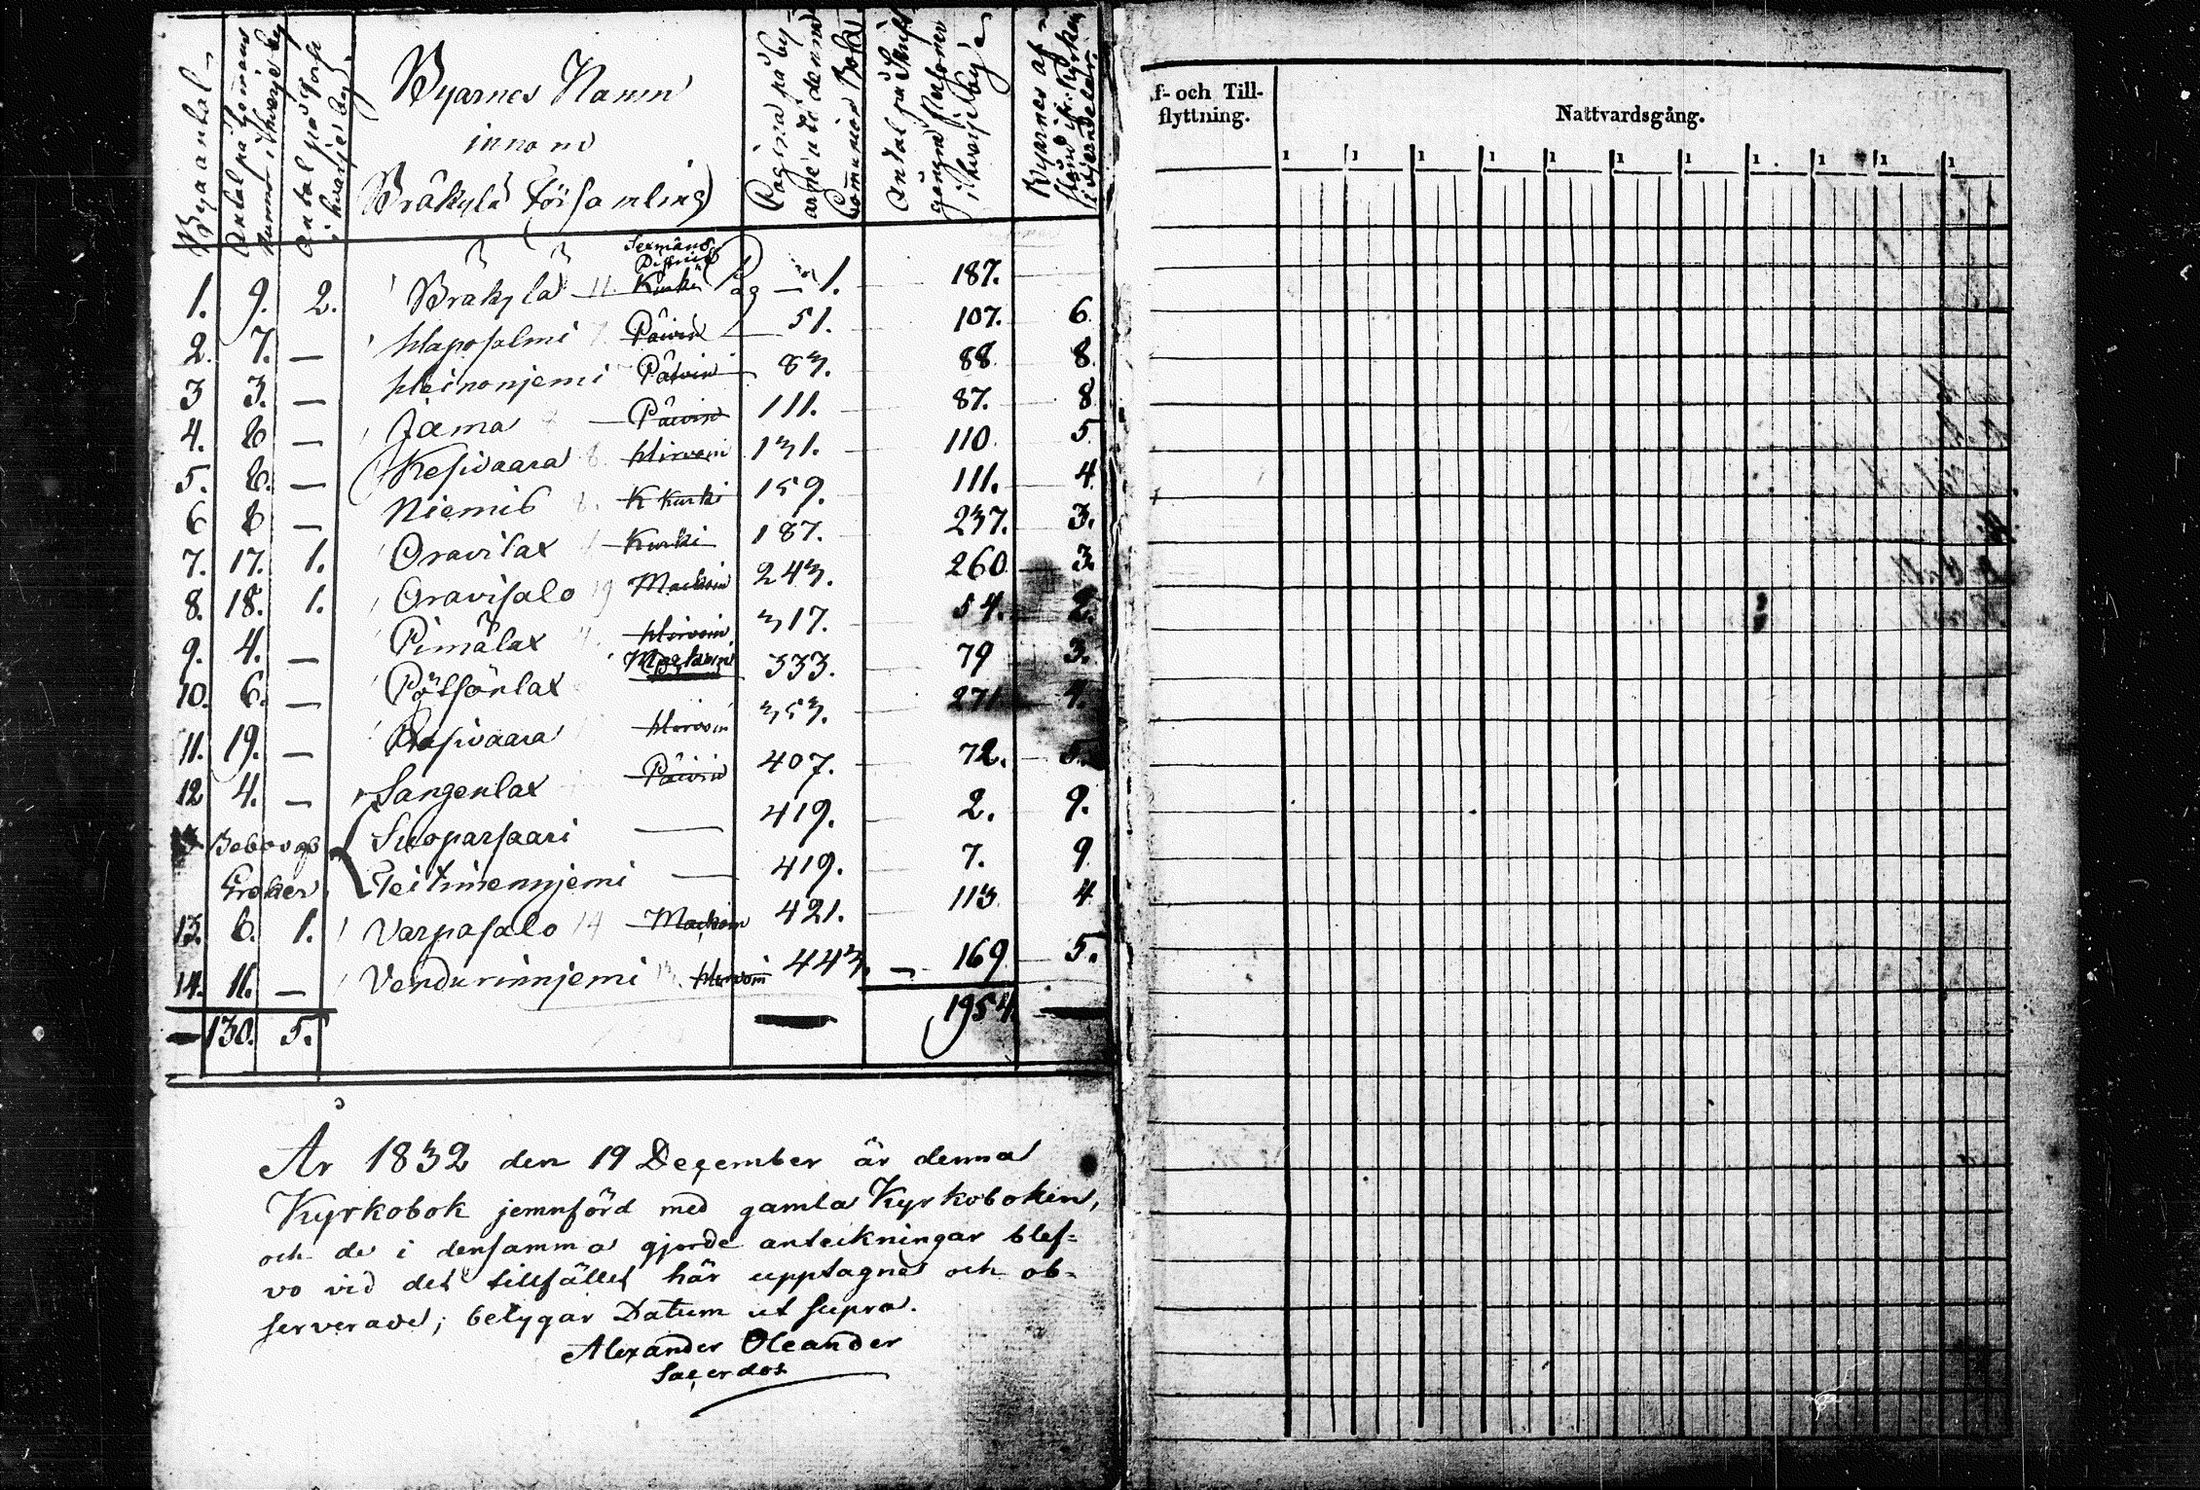 Byaantal
Antal på Hemans Nummer i hvarje by
Antal på Torp i hvarje by
Byarnes Namn
innom
Bräkylä Församling
Pagina på byarne uti denna Communion Bok
Antal på Skriftgångne Personer i hvarje by
Byarnes afstånd ifr. Kyrkan i fjerndelar
Sexmäns District
1. 9. 2. Bräkylä 11 Kurki Pag 1. 187.
2. 7. — Haposalmi 7 Päivin 51. 107. 6.
3 3. — Heinonjemi Päivin 83. 88 8.
4. 8 — Jama 8 Päivin 111. 87. 8
5. 8. — Kesivaara 8. Hirvoin 131. 110 5
6 8 — Niemis 8. K Kurki 159. 111. 4
7. 17. 1. Oravilax Kurki 187. 237. 3.
8. 18. 1. Oravisalo 19 Mackoin 243. 260 3
9. 4. — Pimälax 4 Hirvoin 317. 54. 2
10. 6. — Pötsönlax Mackoin 333. 79 3.
11. 19. — Rasivaara Hirvoin 353. 271 4.
12 4. — Sangenlax Päivin 407. 72. 5.
Suoparsaari — 419. 2. 9.
Teitinennjemi — 419. 7. 9
13. 6. 1. Varpasalo 14 Mackoin 421. 113 4
14. 11. — Vendurinnjemi 13 Hirvoin 443. — 169 5.
— 130. 5. — 1954. —
År 1832 den 19 December är denna
Kyrkobok jemnförd med gamla Kyrkoboken,
och de i densamma gjorde anteckningar blef=
vo vid det tillfället här upptagne och ob=
serverade; betygar Datum ut supra.
Alexander Oleander
Sacerdos
f- och Till-
flyttning.
Nattvardsgång.
1 1 1 1 1 1 1 1 1 1 1